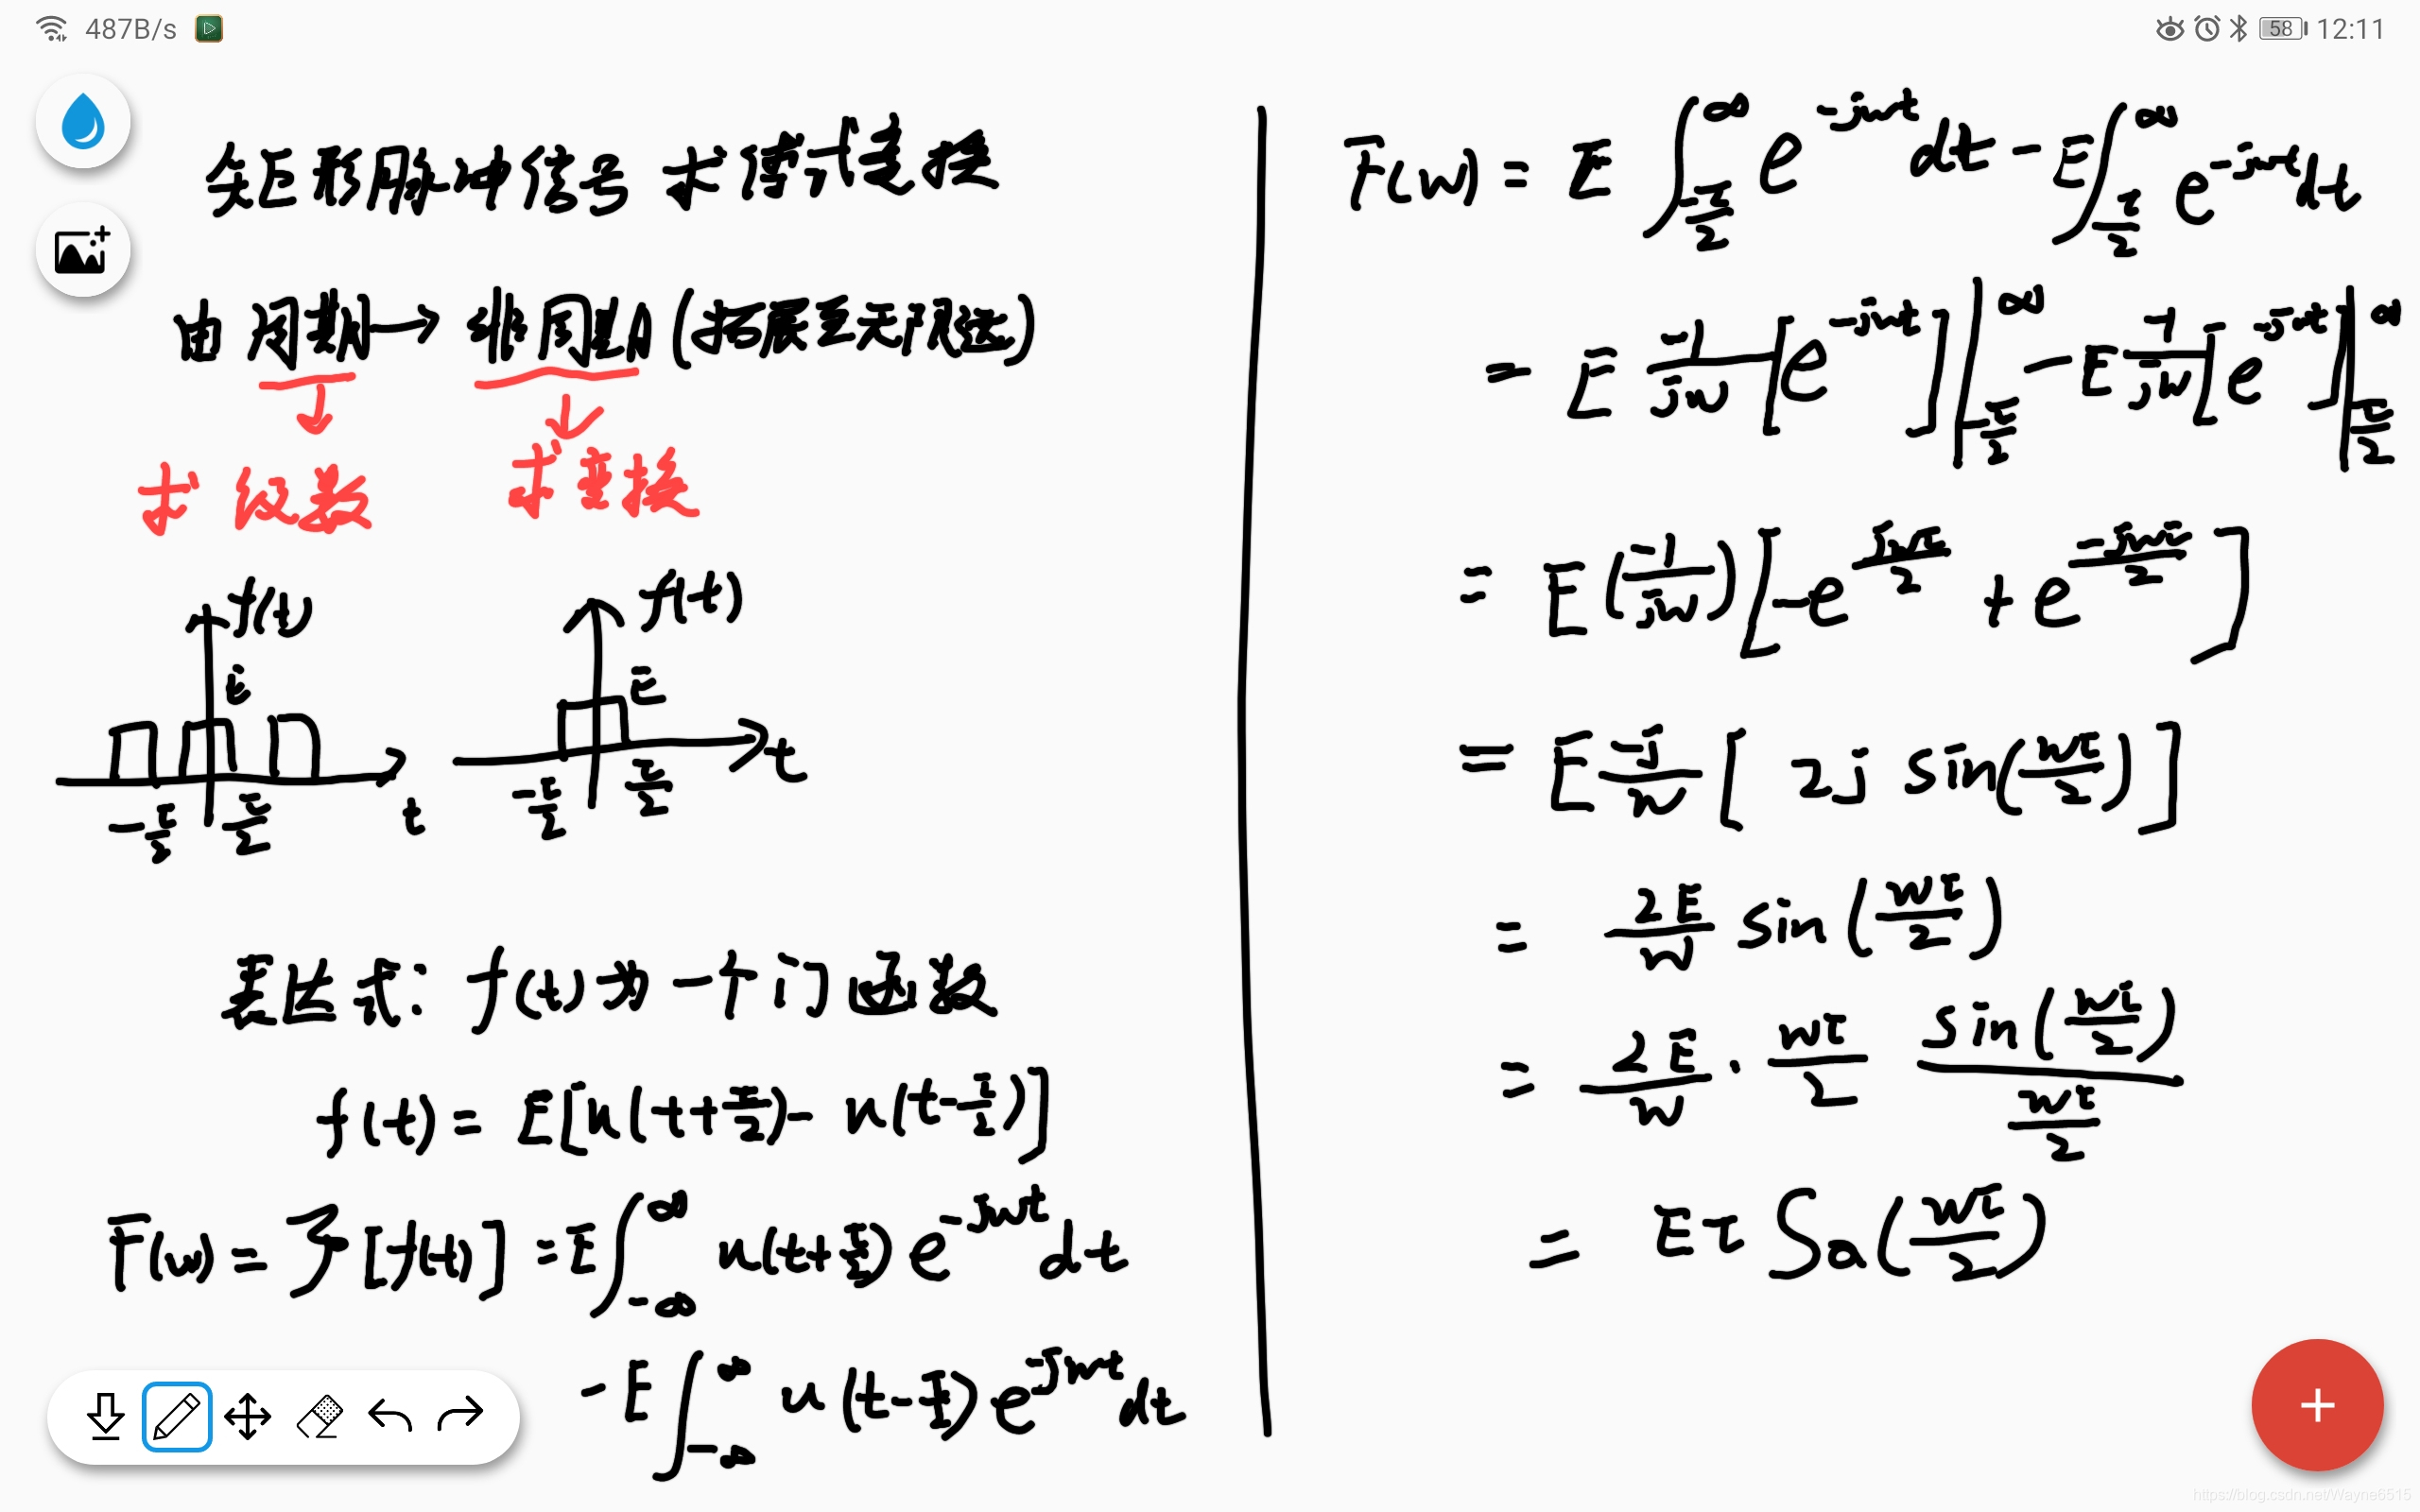 487B/s
58 12:11
矩形脉冲信号 求傅式变换
由周期→非周期(拓展至无限远)
求级数 求变换
f(t) E t -τ/2 τ/2
f(t) E t -τ/2 τ/2
表达式: f(t)为一个门函数
f(t) = E[u(t+τ/2) - u(t-τ/2)]
F(w) = ℱ[f(t)] = E∫_{-∞}^{∞} u(t+τ/2) e^{-jwt} dt
- E∫_{-∞}^{∞} u(t-τ/2) e^{-jwt} dt
F(w) = E ∫_{-τ/2}^{∞} e^{-jwt} dt - E∫_{τ/2}^{∞} e^{-jwt} dt
= E -1/jw [e^{-jwt}] |_{-τ/2}^{∞} - E -1/jw [e^{-jwt}] |_{τ/2}^{∞}
= E(-1/jw)[-e^{jwτ/2} + e^{-jwτ/2}]
= E -j/w [2j sin(wτ/2)]
= 2E/w sin(wτ/2)
= 2E/w · wτ/2 sin(wτ/2)/(wτ/2)
= Eτ Sa(wτ/2)
https://blog.csdn.net/Wayne6515